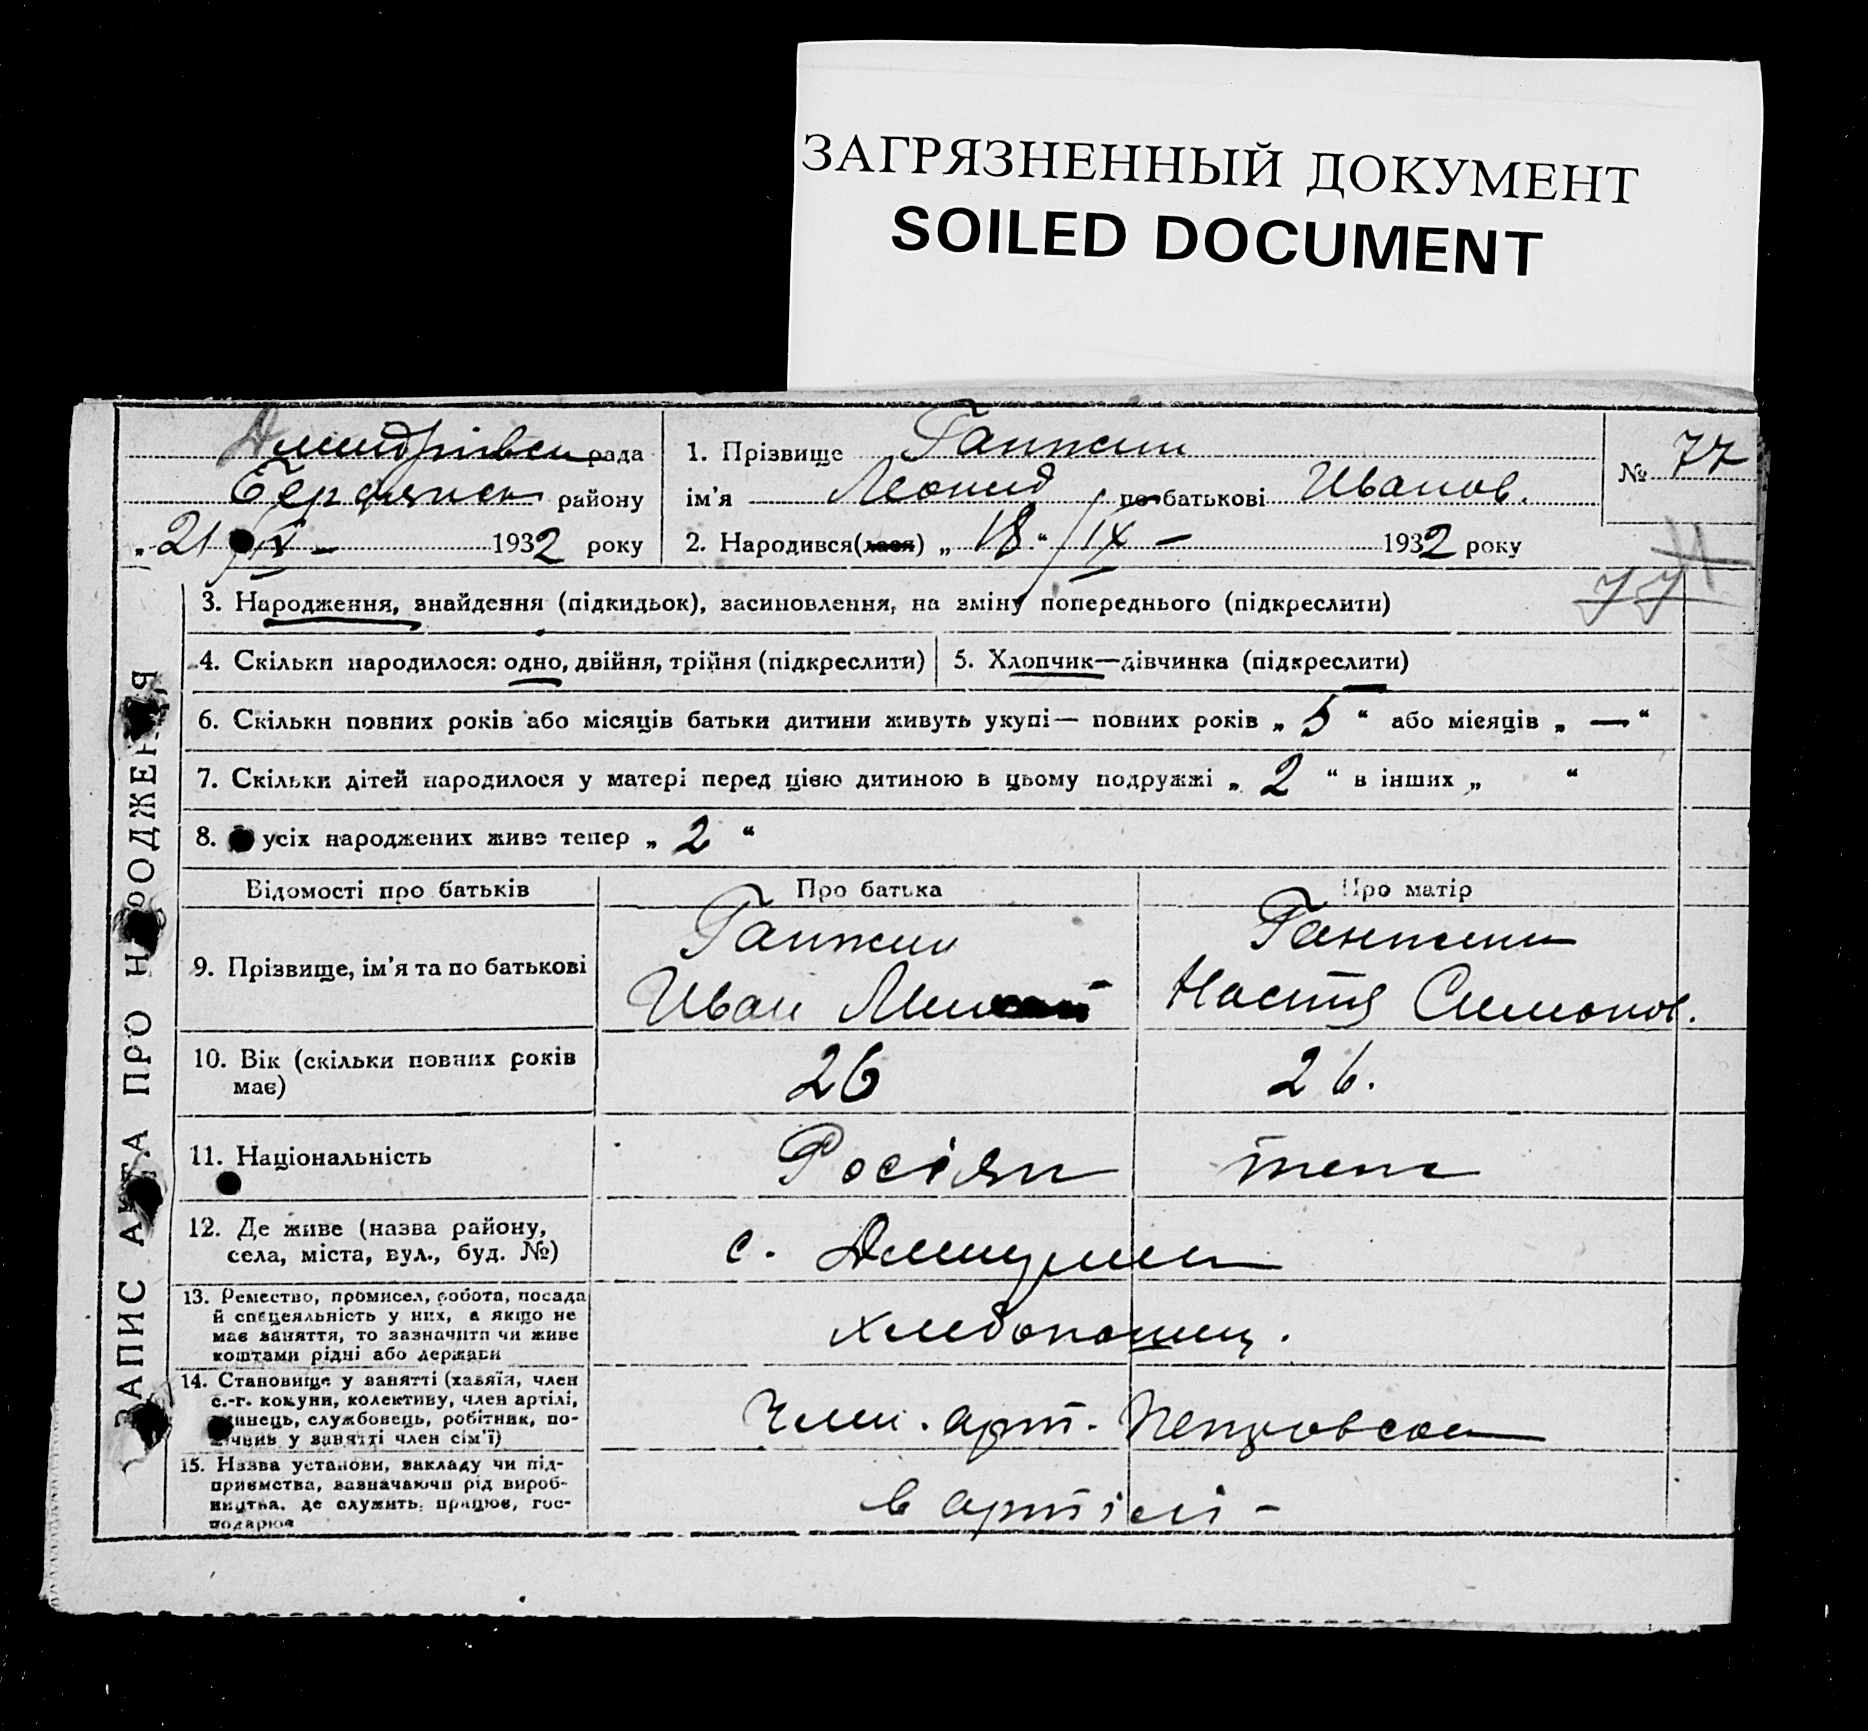 ЗАГРЯЗНЕННЫЙ ДОКУМЕНТ
SOILED DOCUMENT
Дмитрівськ рада
Бердянськ району
„21 1932 року
1. Прізвище
ім'я Леонид по батькові Иванов.
2. Народився(лася) „18“ / IX – 1932 року
№ 77
77
3. Народження, знайдення (підкидьок), засиновлення, на зміну попереднього (підкреслити)
4. Скільки народилося: одно, двійня, трійня (підкреслити)
5. Хлопчик—дівчинка (підкреслити)
6. Скільки повних років або місяців батьки дитини живуть укупі— повних років „ 5 “ або місяців „ — “
7. Скільки дітей народилося у матері перед цією дитиною в цьому подружжі „ 2 “ в інших „ “
8. усіх народжених живе тепер „ 2 “
ЗАПИС АКТА ПРО НАРОДЖЕННЯ
Відомості про батьків
Про батька
Про матір
9. Прізвище, ім'я та по батькові
Иван
Настя Симонов.
10. Вік (скільки повних років
має)
26
26.
11. Національність
Росіян
теж
12. Де живе (назва району,
села, міста, вул., буд. №)
с.
13. Ремество, промисел, робота, посада
й спецеяльність у них, а якщо не
має заняття, то зазначити чи живе
коштами рідні або держави
хлебопашец.
14. Становище у занятті (хазяїн, член
с.-г. комуни, колективу, член артілі,
одинець, службовець, робітник, по-
у занятті член сім'ї)
Член. арт. Петровська
15. Назва установи, закладу чи під-
приємства, зазначаючи рід вироб-
ництва, де служить, працює, гос-
подарює
в артілі –